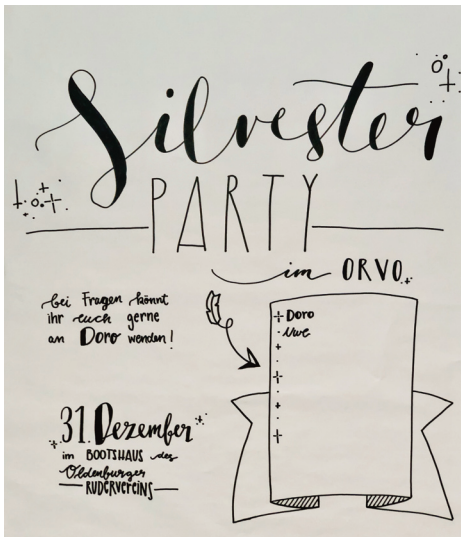 Silvester
PARTY
im ORVO
bei Fragen könnt
ihr euch gerne
an Doro wenden!
Doro
Uwe
31. Dezember
im BOOTSHAUS des
Oldenburger
RUDERVEREINS